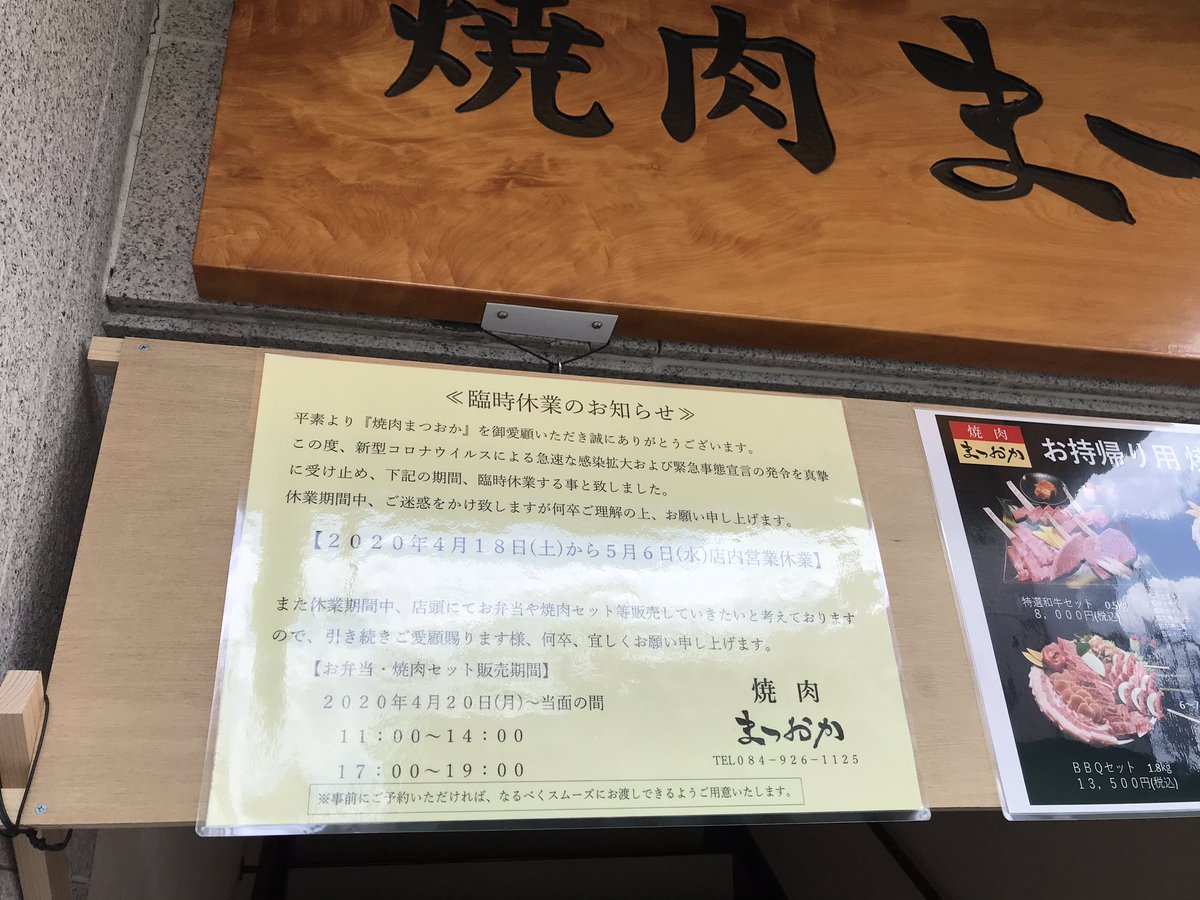 焼肉まつ
≪臨時休業のお知らせ≫
平素より『焼肉まつおか』を御愛顧いただき誠にありがとうございます。
この度、新型コロナウイルスによる急速な感染拡大および緊急事態宣言の発令を真摯
に受け止め、下記の期間、臨時休業する事と致しました。
休業期間中、ご迷惑をかけ致しますが何卒ご理解の上、お願い申し上げます。
【2020年4月18日(土)から5月6日(水)店内営業休業】
また休業期間中、店頭にてお弁当や焼肉セット等販売していきたいと考えております
ので、引き続きご愛顧賜ります様、何卒、宜しくお願い申し上げます。
【お弁当・焼肉セット販売期間】
2020年4月20日(月)～当面の間
11：00～14：00
17：00～19：00
※事前にご予約いただければ、なるべくスムーズにお渡しできるようご用意いたします。
焼肉
まつおか
TEL084-926-1125
焼肉
まつおか
お持帰り用 焼
2～3人前
特選和牛セット 0.5kg
8,000円(税込)
6～7
BBQセット 1.8kg
13,500円(税込)